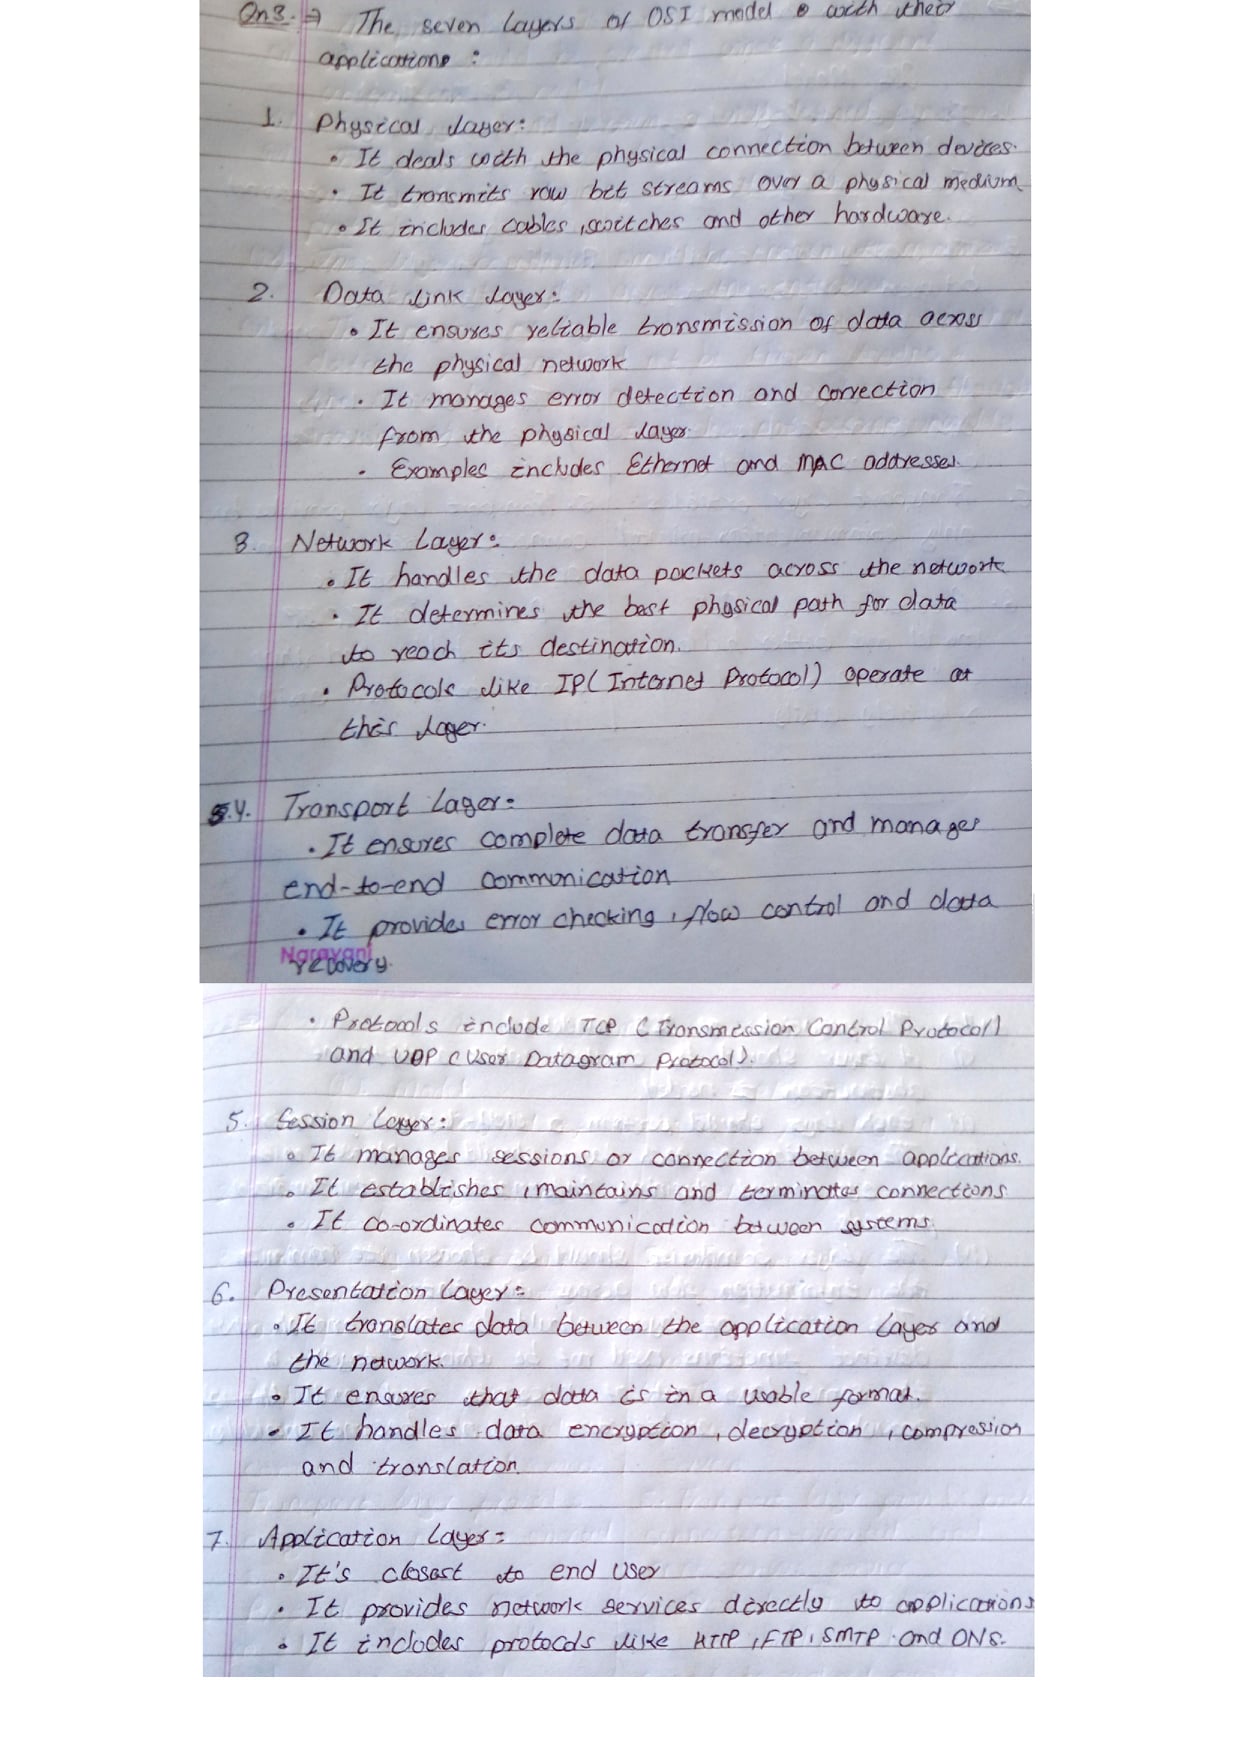 Qn3. ⇒ The seven layers of OSI model with their
applications :
1. Physical layer:
• It deals with the physical connection between devices.
• It transmits raw bit streams over a physical medium.
• It includes cables, switches and other hardware.
2. Data link layer:
• It ensures reliable transmission of data across
the physical network
• It manages error detection and correction
from the physical layer.
• Examples includes Ethernet and MAC addresses.
3. Network Layer:
• It handles the data packets across the network
• It determines the best physical path for data
to reach its destination.
• Protocols like IP (Internet Protocol) operate at
this layer.
4. Transport Layer:
• It ensures complete data transfer and manages
end-to-end communication
• It provides error checking, flow control and data
Narayani
recovery.
• Protocols include TCP (Transmission Control Protocol)
and UDP (User Datagram Protocol).
5. Session Layer:
• It manages sessions or connection between applications.
• It establishes, maintains and terminates connections
• It co-ordinates communication between systems.
6. Presentation Layer:
• It translates data between the application layer and
the network.
• It ensures that data is in a usable format.
• It handles data encryption, decryption, compression
and translation.
7. Application Layer:
• It's closest to end user
• It provides network services directly to applications
• It includes protocols like HTTP, FTP, SMTP and DNS.